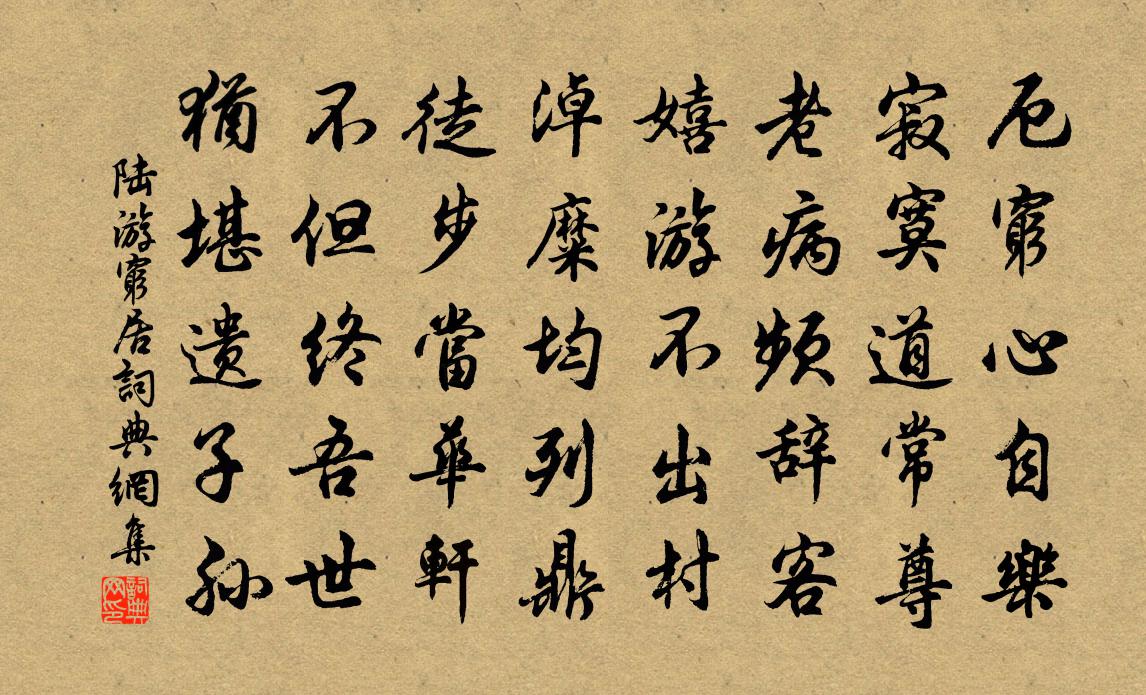 厄窮心自樂
寂寞道常尊
老病頻辞客
嬉游不出村
淖糜均列鼎
徒步當華軒
不但終吾世
猶堪遗子孫
陆游窮居詞典網集
詞典網印